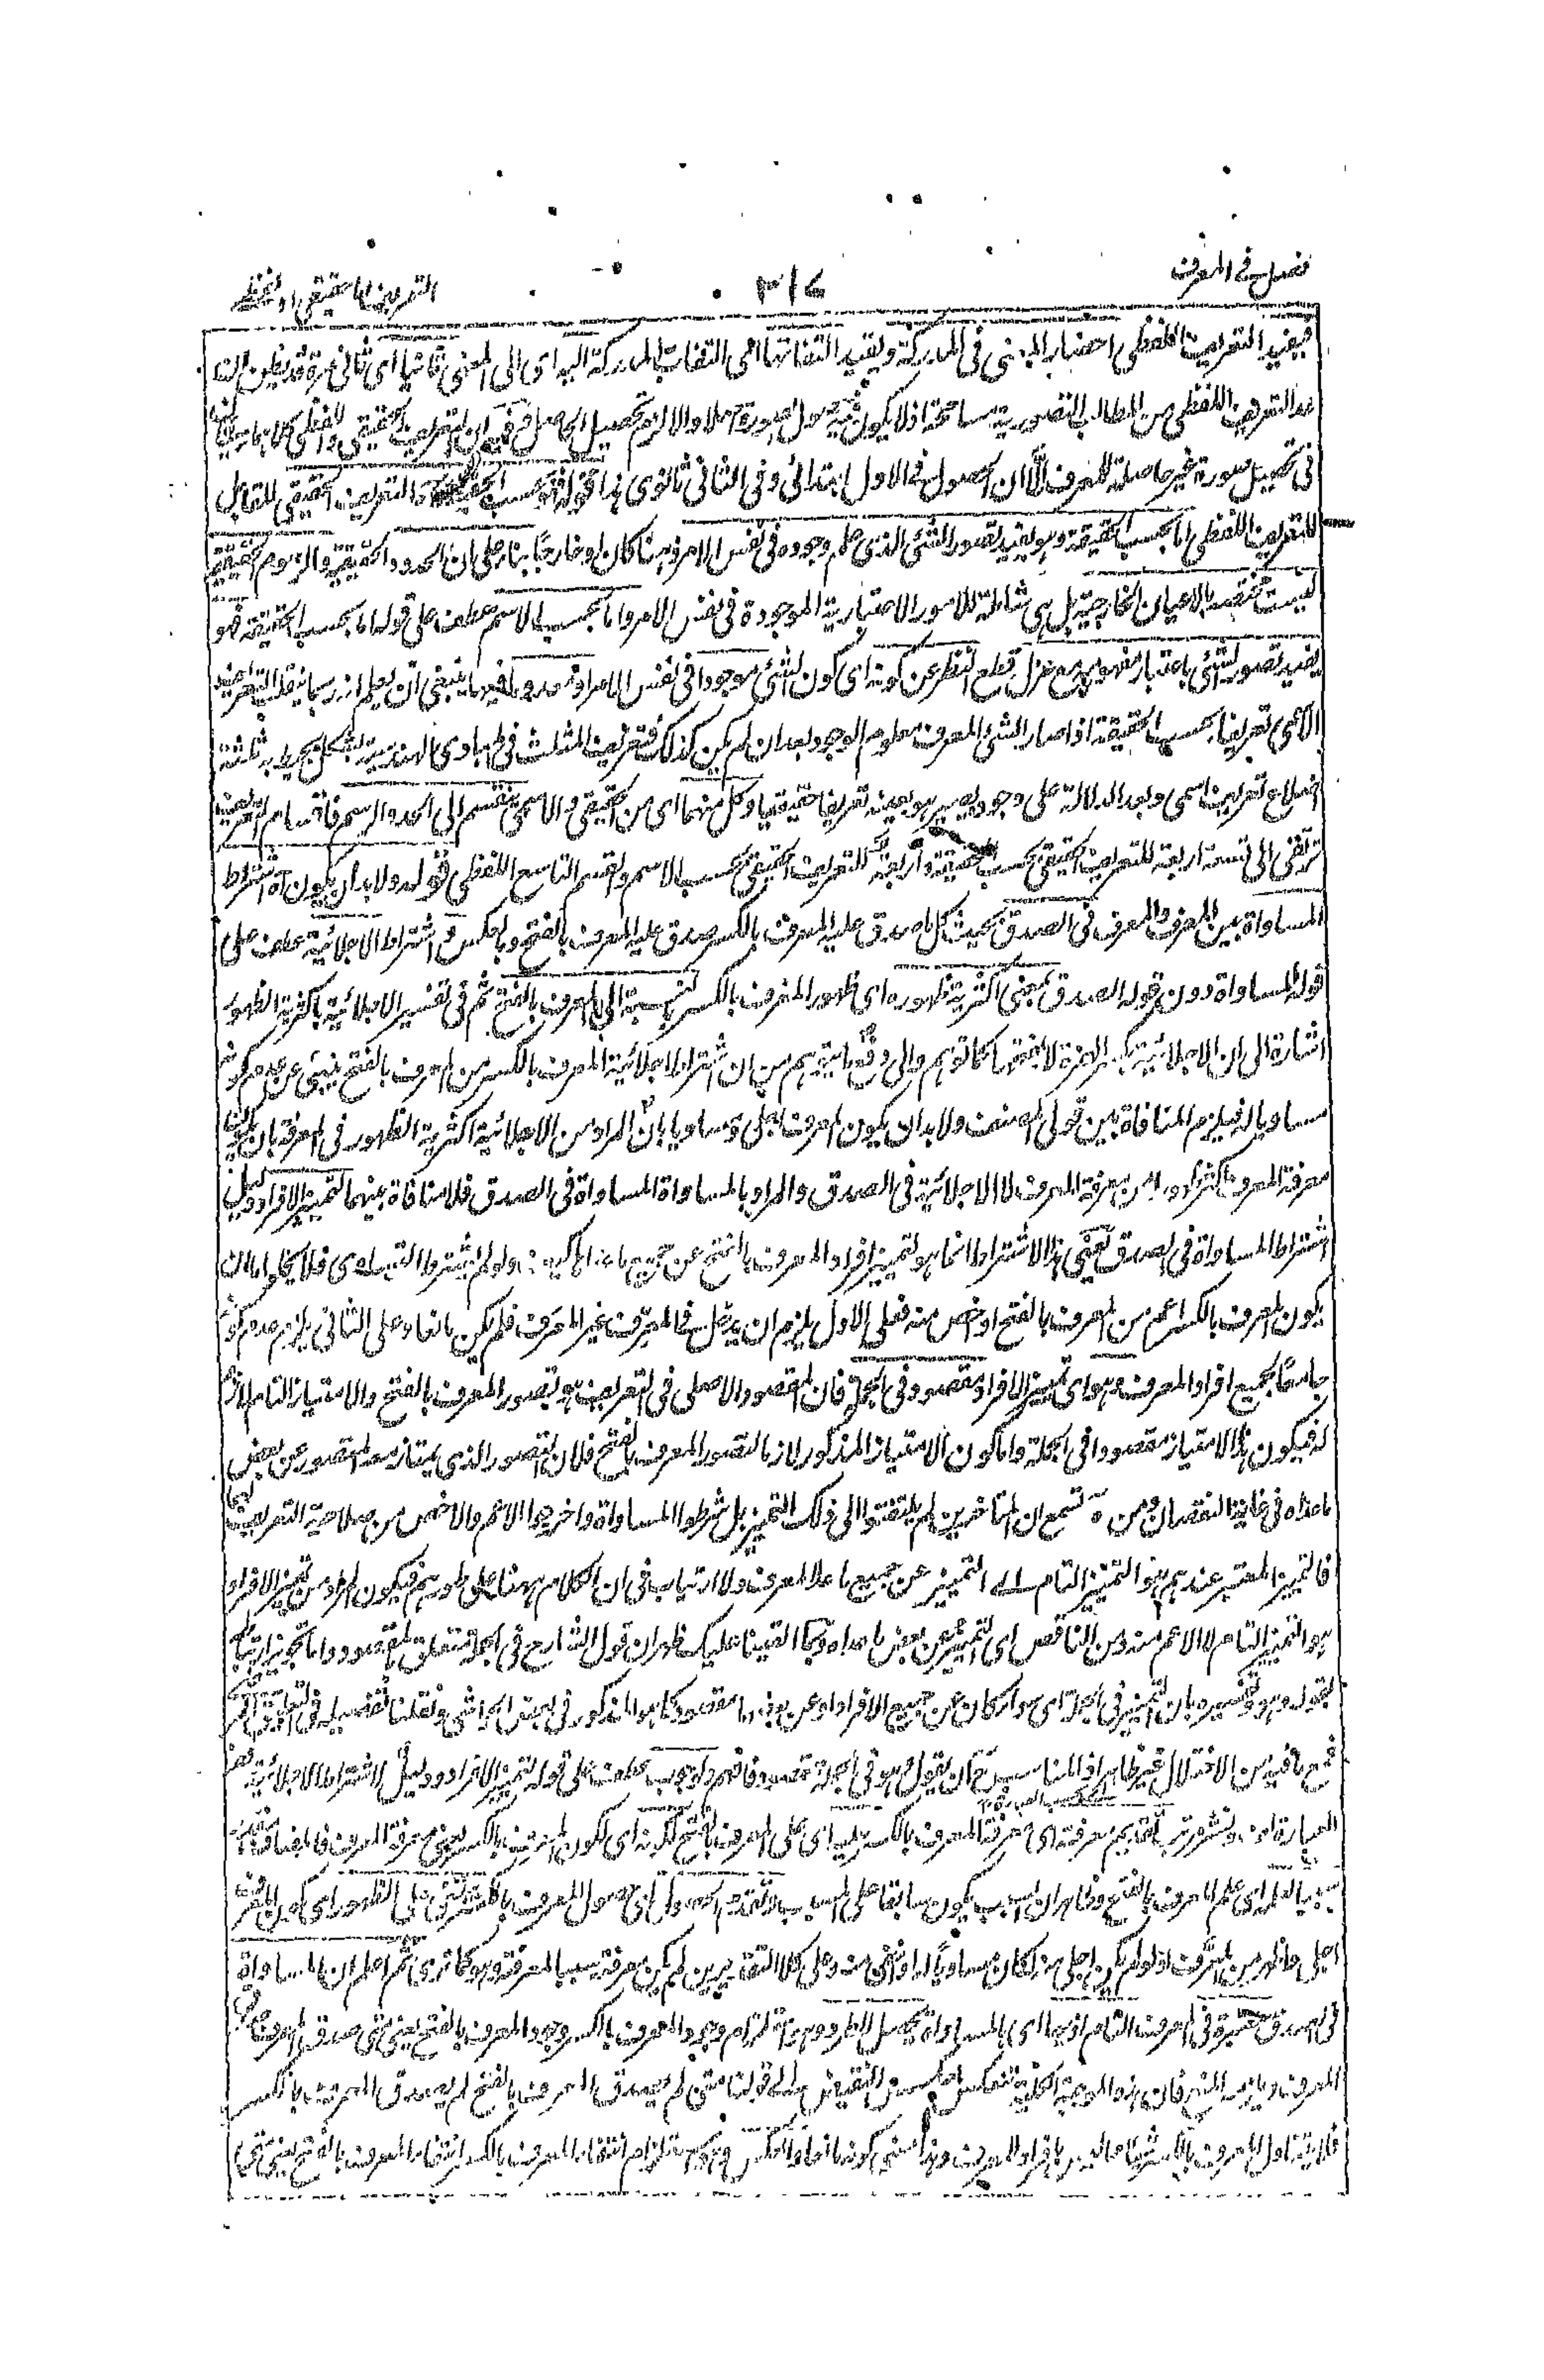 فصل في المعرف
٣١٧
التعريف اما حقيقي او لفظي
فيفيد التعريف اللفظي احضار المعنى في المدركة ويفيد التفاتها اى التفات المدركة الى المعنى ثانيا اى ثاني مرة قد يظن ان
عد التعريف اللفظي من المطالب التصورية مسامحة اذ لا يكون ثمة حصول صورة اصلا والا لزم تحصيل الحاصل ان التعريف الحقيقي واللفظي
في تحصيل صورة غير حاصلة للمعرف الا ان الحصول في الاول ابتدائي وفي الثاني ثانوي بحسب الحقيقة التعريف الحقيقي المقابل
للتعريف اللفظي اما بحسب الحقيقة وهو يفيد تصور الشئ الذى علم وجوده في نفس الامر ذهنا كان او خارجا بناء على ان الحدود الحقيقية والرسوم الحقيقية
ليست مختصة بالاعيان الخارجية بل هى شاملة للامور الاعتبارية الموجودة في نفس الامر واما بحسب الاسم عطف على قوله اما بحسب الحقيقة فهو
يفيد تصور الشئ باعتبار مفهومه مع عزل قطع النظر عن كونه اى كون الشئ موجودا في نفس الامر او معدوما فيها ينبغي ان يعلم انه ربما ينقلب التعريف
الاسمى تعريفا بحسب الحقيقة اذا صار الشئ المعرف معلوم الوجود بعد ان لم يكن كذلك فتعريف المثلث في مبادى الهندسة بشكل يحيط به ثلثة
اضلاع تعريف اسمى وبعد الدلالة على وجوده يصير هو بعينه تعريفا حقيقيا وكل منهما اى من الحقيقي والاسمى ينقسم الى الحد والرسم فاقسام التعريف
ترتقى الى تسعة اربعة للتعريف الحقيقي بحسب الحقيقة واربعة للتعريف الحقيقي بحسب الاسم والقسم التاسع اللفظي قوله ولا بد ان يكون اه اشتراط
المساواة بين المعرف والمعرف في الصدق بحيث كل ما صدق عليه المعرف بالكسر صدق عليه المعرف بالفتح وبالعكس واشتراط الاجلائية عطف على
قوله المساواة دون قوله الصدق بمعنى اكثرية ظهوره اى ظهور المعرف بالكسر بالنسبة الى المعرف بالفتح ثم في تفسير الاجلائية باكثرية الظهور
اشارة الى ان الاجلائية بكسر الهمزة لا بفتحها كما توهم والى دفع ما يتوهم من ان اشتراط اجلائية المعرف بالكسر من المعرف بالفتح ينبئ عن عدم كونه
مساويا له فيلزم المنافاة بين قولى المصنف ولا بد ان يكون المعرف اجلى ومساويا بان المراد من الاجلائية اكثرية الظهور في المعرفة بان يكون
معرفة المعرف اكثر من معرفة المعرف لا الاجلائية في الصدق والمراد بالمساواة المساواة في الصدق فلا منافاة بينهما لتميز الافراد دليل
اشتراط المساواة في الصدق يعنى هذا الاشتراط انما هو لتميز افراد المعرف بالفتح عن جميع ما عداها ولو لم يشترط التساوى فلا يخلو اما ان
يكون المعرف بالكسر اعم من المعرف بالفتح او اخص منه فعلى الاول يلزم ان يدخل في المعرف غير المعرف فلم يكن مانعا وعلى الثاني يلزم عدم كونه
جامعا لجميع افراد المعرف وهو اى تميز الافراد مقصود في الجملة فان المقصود الاصلى في التعريف هو تصور المعرف بالفتح والامتياز التام لازم
له فيكون هذا الامتياز مقصودا في الجملة واما كون الامتياز المذكور لازما لتصور المعرف بالفتح فلان التصور الذى يمتاز معه المتصور عن بعض
ما عداه في غاية النقصان ومن ثمه تسمع ان المتاخرين لم يلتفتوا الى ذلك التميز بل شرطوا المساواة واخرجوا الاعم والاخص من صلاحية التعريف
فالتميز المعتبر عندهم هو التميز التام اى التميز عن جميع ما عدا المعرف ولا ارتياب في ان الكلام ههنا على طورهم فيكون المراد من تميز الافراد
هو التميز التام لا الاعم منه ومن الناقص اى التميز عن بعض ما عداه وبما القينا عليك ظهر ان قول الشارح في الجملة متعلق بالمقصود واما تجويز
بقوله وهو وتفسيره بان التميز في الجملة اى سواء كان عن جميع الافراد او عن بعضها مقصود كما هو المذكور في بعض الحواشى ونقلنا تفصيله في
فمع ما فيه من الاختلال غير ظاهر اذ المناسب ح ان يقول وهو في الجملة مقصود فافهم ولوجوب عطف على قوله لتميز الافراد ودليل لاشتراط الاجلائية
العبارة تقديم معرفته اى معرفة المعرف بالكسر عليه اى على المعرف بالفتح لكونه اى لكون المعرف بالكسر معرفة المعرف
سببا لعلمه اى علم المعرف بالفتح وظاهر ان السبب يكون سابقا على المسبب ولتقدم الحصول اى حصول المعرف
اجلى واظهر من المعرف اذ لو لم يكن اجلى منه لكان مساويا له او اخفى منه وعلى كلا التقديرين لم يكن معرفته سببا لمعرفته وهو كما ترى ثم اعلم ان المساواة
في الصدق معتبرة في المعرف التام اذ بها اى بالمساواة يحصل الاطراد وهو استلزام وجود المعرف بالكسر وجود المعرف بالفتح يعنى متى صدق المعرف
المعرف ويلزمه المنع فان هذه الموجبة الكلية تنعكس بعكس النقيض الى قولنا متى لم يصدق المعرف بالفتح لم يصدق المعرف بالكسر
فلا يتناول المعرف بالكسر شيئا مما ليس من افراد المعرف وهذا معنى كونه مانعا والعكس وهو استلزام انتفاء المعرف بالكسر انتفاء المعرف بالفتح يعنى متى